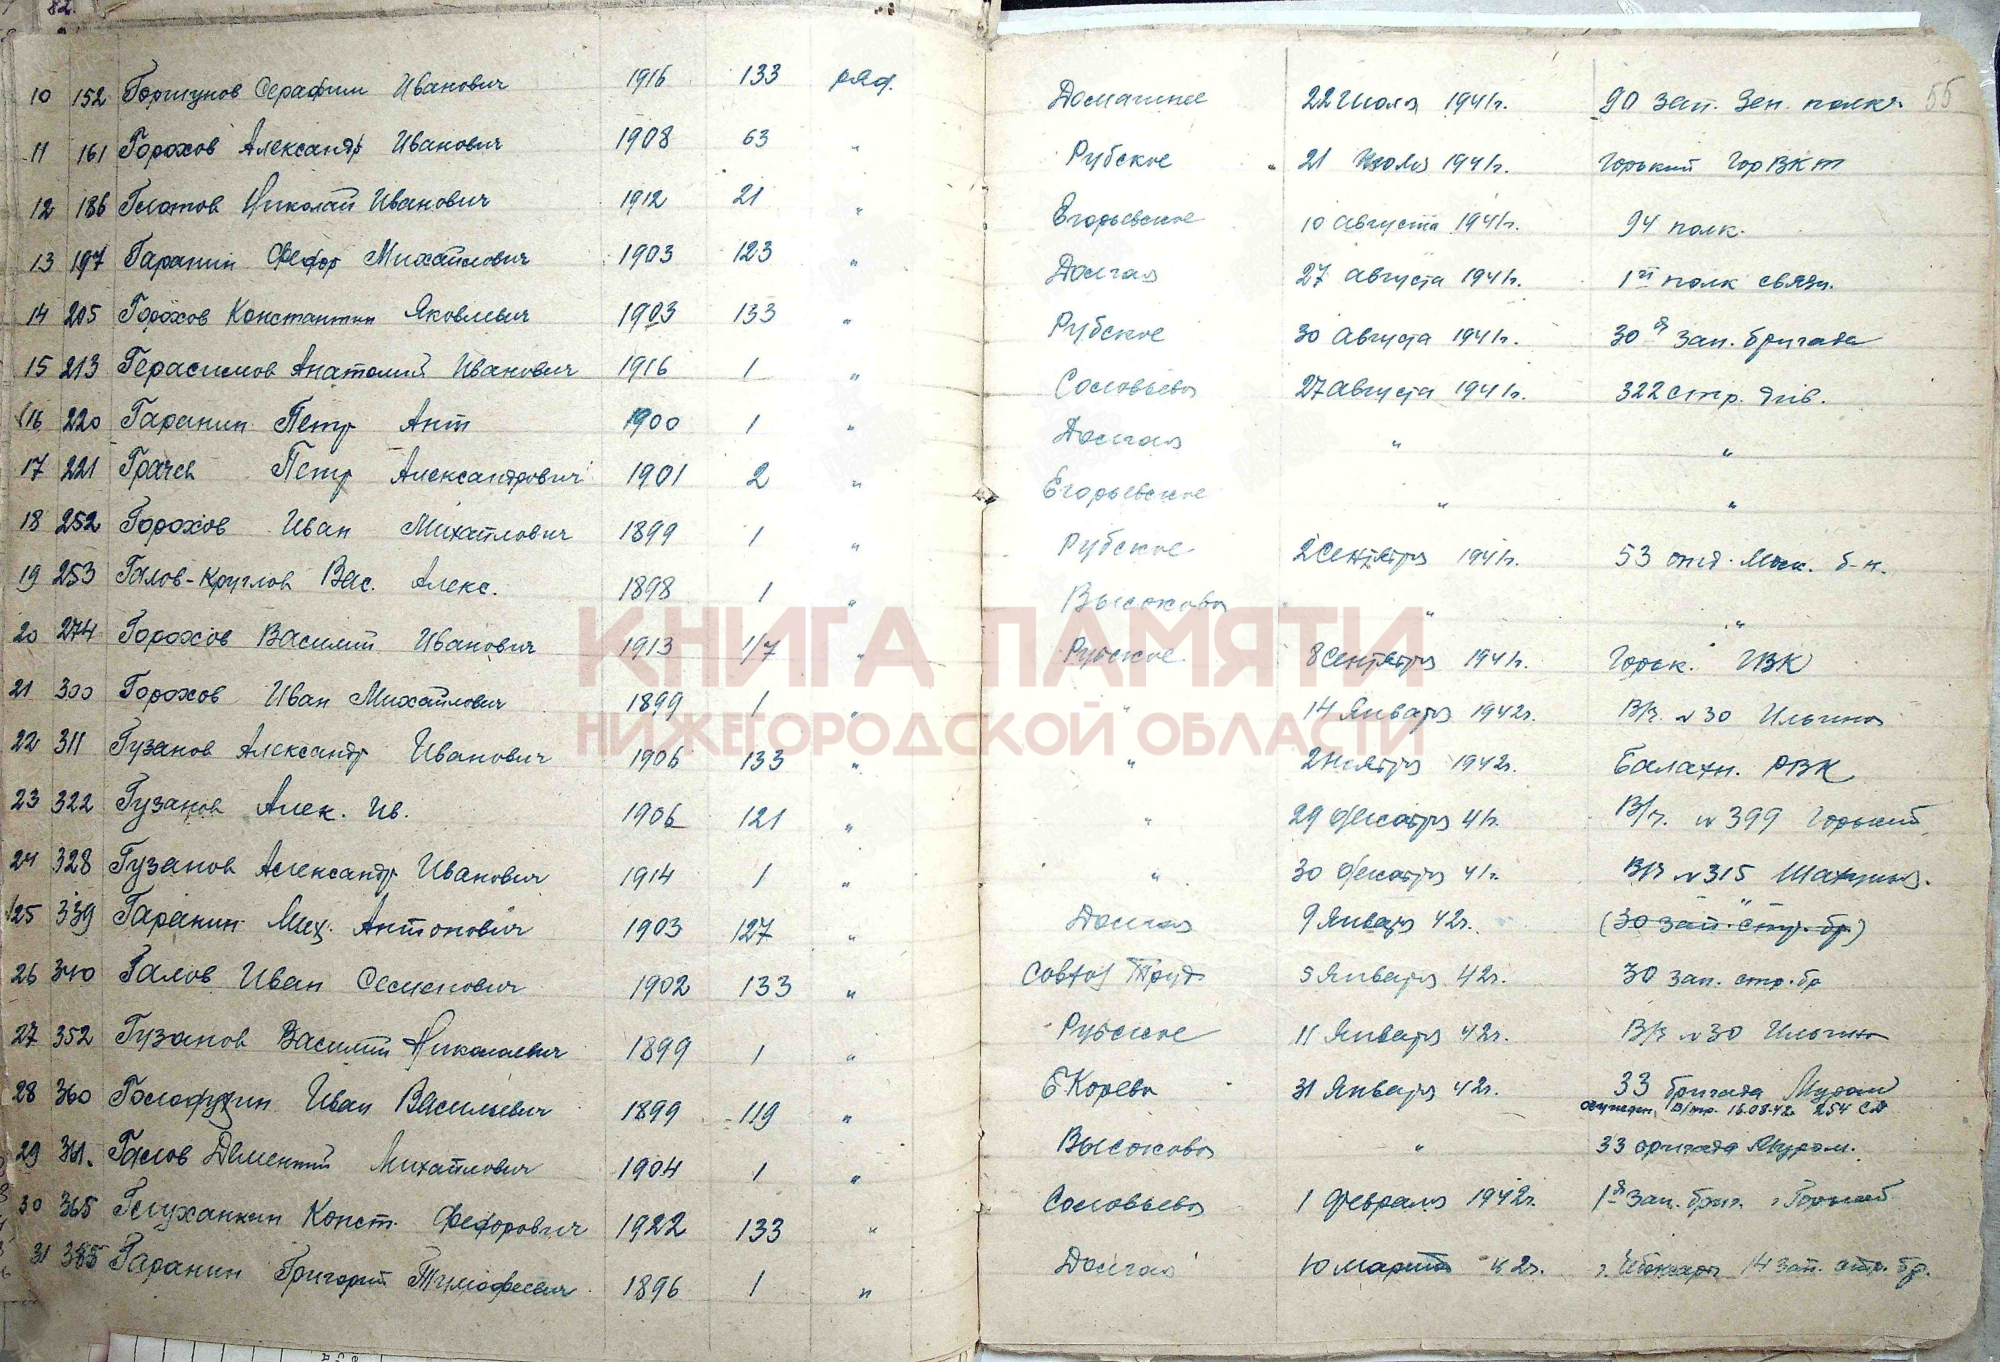 82.
55
10 152 Горшунов Серафим Иванович 1916 133 ряд. Домашнее 22 Июля 1941г. 90 зап. Зен. полк.
11 161 Горохов Александр Иванович 1908 63 " Рубское 21 Июля 1941г. Горький ГорВКт
12 186 Глотов Николай Иванович 1912 21 " Егорьевское 10 августа 1941г. 94 полк.
13 197 Гаранин Федор Михайлович 1903 123 " Долгая 27 августа 1941г. 1й полк связи.
14 205 Горохов Константин Яковлевич 1903 133 " Рубское 30 Августа 1941г. 30я Зап. бригада
15 213 Герасимов Анатолий Иванович 1916 1 " Соловьево 27 августа 1941г. 322 стр. див.
16 220 Гаранин Петр Ант 1900 1 " Долгая " "
17 221 Грачев Петр Александрович 1901 2 " Егорьевское " "
18 252 Горохов Иван Михайлович 1899 1 " Рубское 2 Сентября 1941г. 53 отд. б-н.
19 253 Галов-Круглов Вас. Алекс. 1898 1 " Высоково " "
20 274 Горохов Василий Иванович 1913 1/7 " Рубское 8 Сентября 1941г. Горьк. ГВК
КНИГА ПАМЯТИ
21 300 Горохов Иван Михайлович 1899 1 " " 14 Января 1942г. В/ч №30 Ильино
НИЖЕГОРОДСКОЙ ОБЛАСТИ
22 311 Гузанов Александр Иванович 1906 133 " " 2 Ноября 1942г. Балахн. РВК
23 322 Гузанов Алек. Ив. 1906 121 " " 29 Декабря 41г. В/ч. №399 Горький
24 328 Гузанов Александр Иванович 1914 1 " " 30 Декабря 41г. В/ч №315
25 339 Гаранин Мих. Антонович 1903 127 " Долгая 9 Января 42г. (30 зап. стр. бр.)
26 340 Галов Иван Семенович 1902 133 " Совхоз Труд 5 Января 42г. 30 зап. стр. бр
27 352 Гузанов Василий Николаевич 1899 1 " Рубское 11 Января 42г. В/ч №30 Ильино
28 360 Голофузин Иван Васильевич 1899 119 " Б Корево 31 Января 42г. 33 бригада Муром
16.08.42г 254 СД
29 361. Галов Дементий Михайлович 1904 1 " Высоково " 33 бригада Муром.
30 365 Глуханкин Конст. Федорович 1922 133 " Соловьево 1 Февраля 1942г. 1я Зап. бриг. г. Горький
31 385 Гаранин Григорий Тимофеевич 1896 1 " Долгая 10 марта 42г. г. Чебоксары 14 зап. стр. бр.